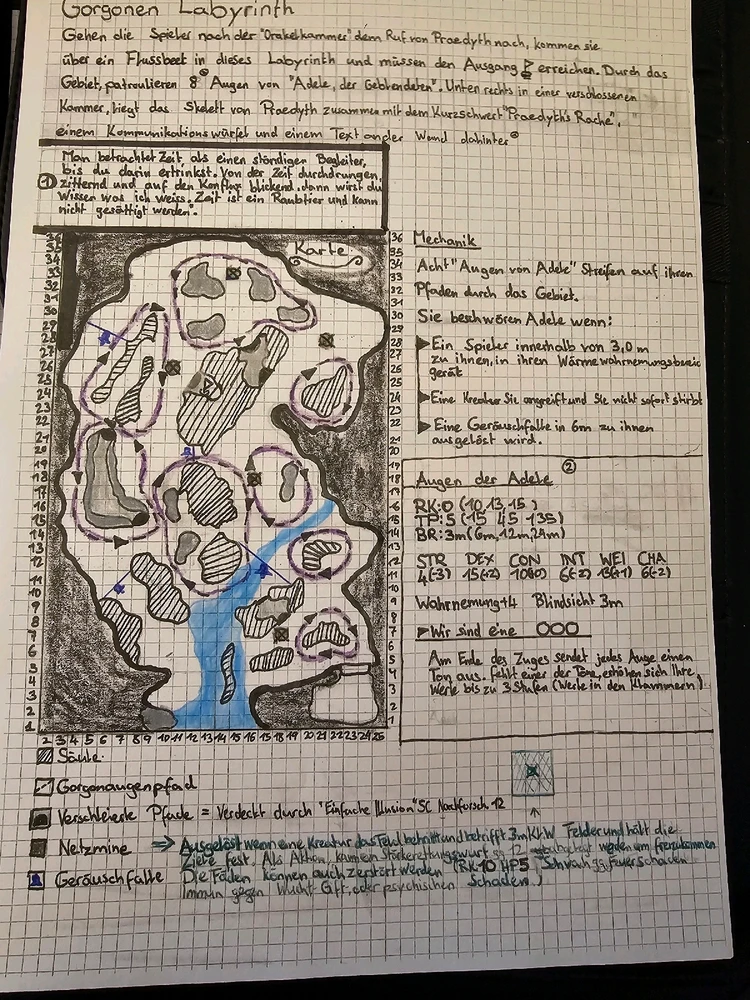 Gorgonen Labyrinth
Gehen die Spieler nach der "Orakelkammer" dem Ruf von Praedyth nach, kommen sie
über ein Flussbeet in dieses Labyrinth und müssen den Ausgang erreichen. Durch das
Gebiet, patroulieren 8 Augen von "Adele, der Geblendeten". Unten rechts in einer verschlossenen
Kammer, liegt das Skelett von Praedyth zusammen mit dem Kurzschwert "Praedyth's Rache",
einem Kommunikationswürfel und einem Text an der Wand dahinter
Man betrachtet Zeit als einen ständigen Begleiter,
bis du darin ertrinkst. Von der Zeit durchdrungen,
① zitternd und auf den Konflux blickend. dann wirst du
Wissen was ich weiss. Zeit ist ein Raubtier und kann
nicht gesättigt werden".
Karte
36
35
34
33
32
31
30
29
28
27
26
25
24
23
22
21
20
19
18
17
16
15
14
13
12
11
10
9
8
7
6
5
4
3
2
1
2 3 4 5 6 7 8 9 10 11 12 13 14 15 16 17 18 19 20 21 22 23 24 25
Mechanik
Acht "Augen von Adele" Streifen auf ihren
Pfaden durch das Gebiet.
Sie beschwören Adele wenn:
Ein Spieler innerhalb von 3,0 m
zu ihnen, in ihren Wärmewahrnemungsbereic
gerät
Eine Kreatur Sie angreift und Sie nicht sofort stirbt
Eine Geräuschfalle in 6m zu ihnen
ausgelöst wird.
Augen der Adele ②
RK: 0 (10, 13, 15)
TP: 5 (15 45 135)
BR: 3m (6m, 12m, 24m)
STR DEX CON INT WEI CHA
4(-3) 15(+2) 10(±0) 6(-2) 13(+1) 6(-2)
Wahrnemung+4 Blindsicht 3m
Wir sind eine OOO
Am Ende des Zuges sendet jedes Auge einen
Ton aus. fehlt einer der Töne, erhöhen sich Ihre
Werte bis zu 3 Stufen (Werte in den Khammern)
Säule
Gorgonaugenpfad
Verschleierte Pfade = Verdeckt durch "Einfache Illusion" SC Nachforsch. 12
Netzmine => Ausgelöst wenn eine Kreatur das Feld betritt und betrifft 3m Felder und hält die
Ziele fest. Als Aktion, kann ein Stärkerettungswurf gg 12 werden um freizukommen
Geräuschfalle Die Fäden können auch zerstört werden (RK 10 HP5 Schwach gg Feuerschaden
Immun gegen Wucht Gift, oder psychischen Schaden.)